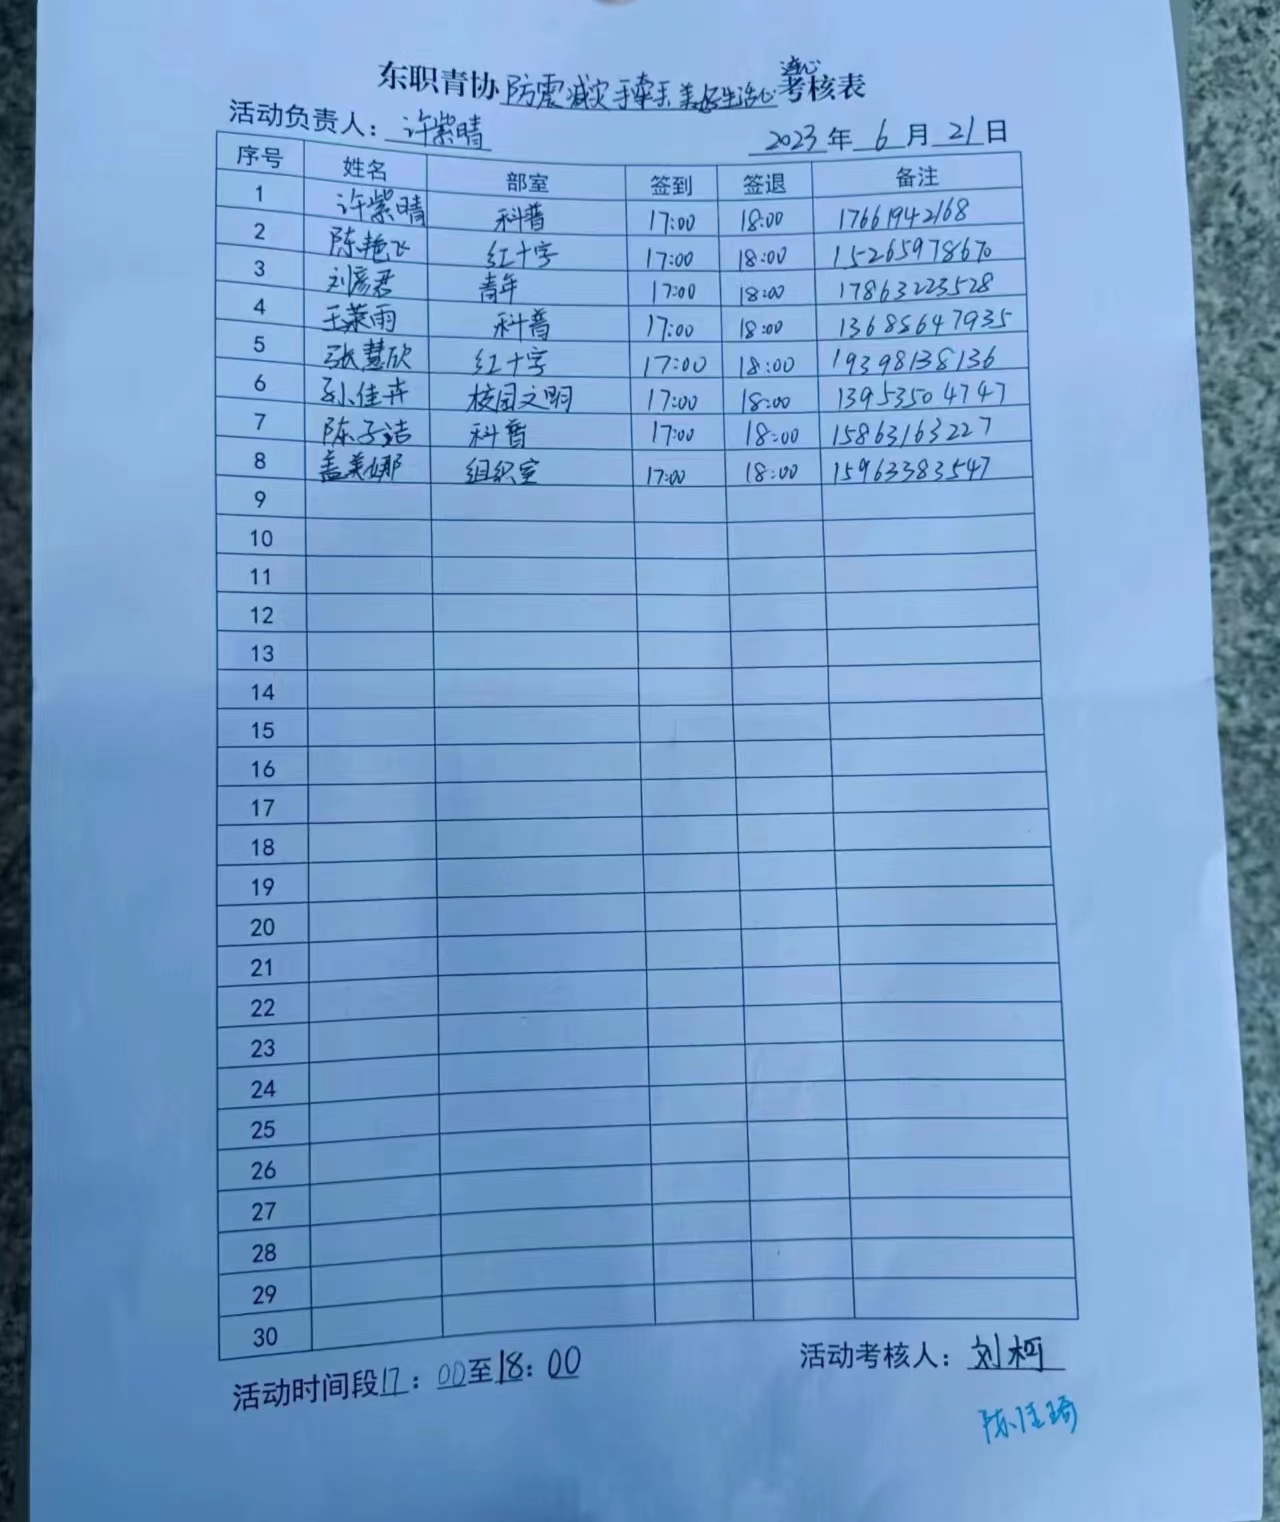 连心
东职青协防震减灾手牵手美好生活心考核表
活动负责人：许紫晴 2023年6月21日
序号 姓名 部室 签到 签退 备注
1 许紫晴 科普 17:00 18:00 17661942168
2 陈艳飞 红十字 17:00 18:00 15265978670
3 刘彦君 青年 17:00 18:00 17863223528
4 王莱雨 科普 17:00 18:00 13685647935
5 张慧欣 红十字 17:00 18:00 19398138136
6 孙佳卉 校园文明 17:00 18:00 13953504747
7 陈子洁 科普 17:00 18:00 15863163227
8 盖美娜 组织室 17:00 18:00 15963383547
9
10
11
12
13
14
15
16
17
18
19
20
21
22
23
24
25
26
27
28
29
30
活动时间段17：00至18：00 活动考核人：刘柯
陈佳琦